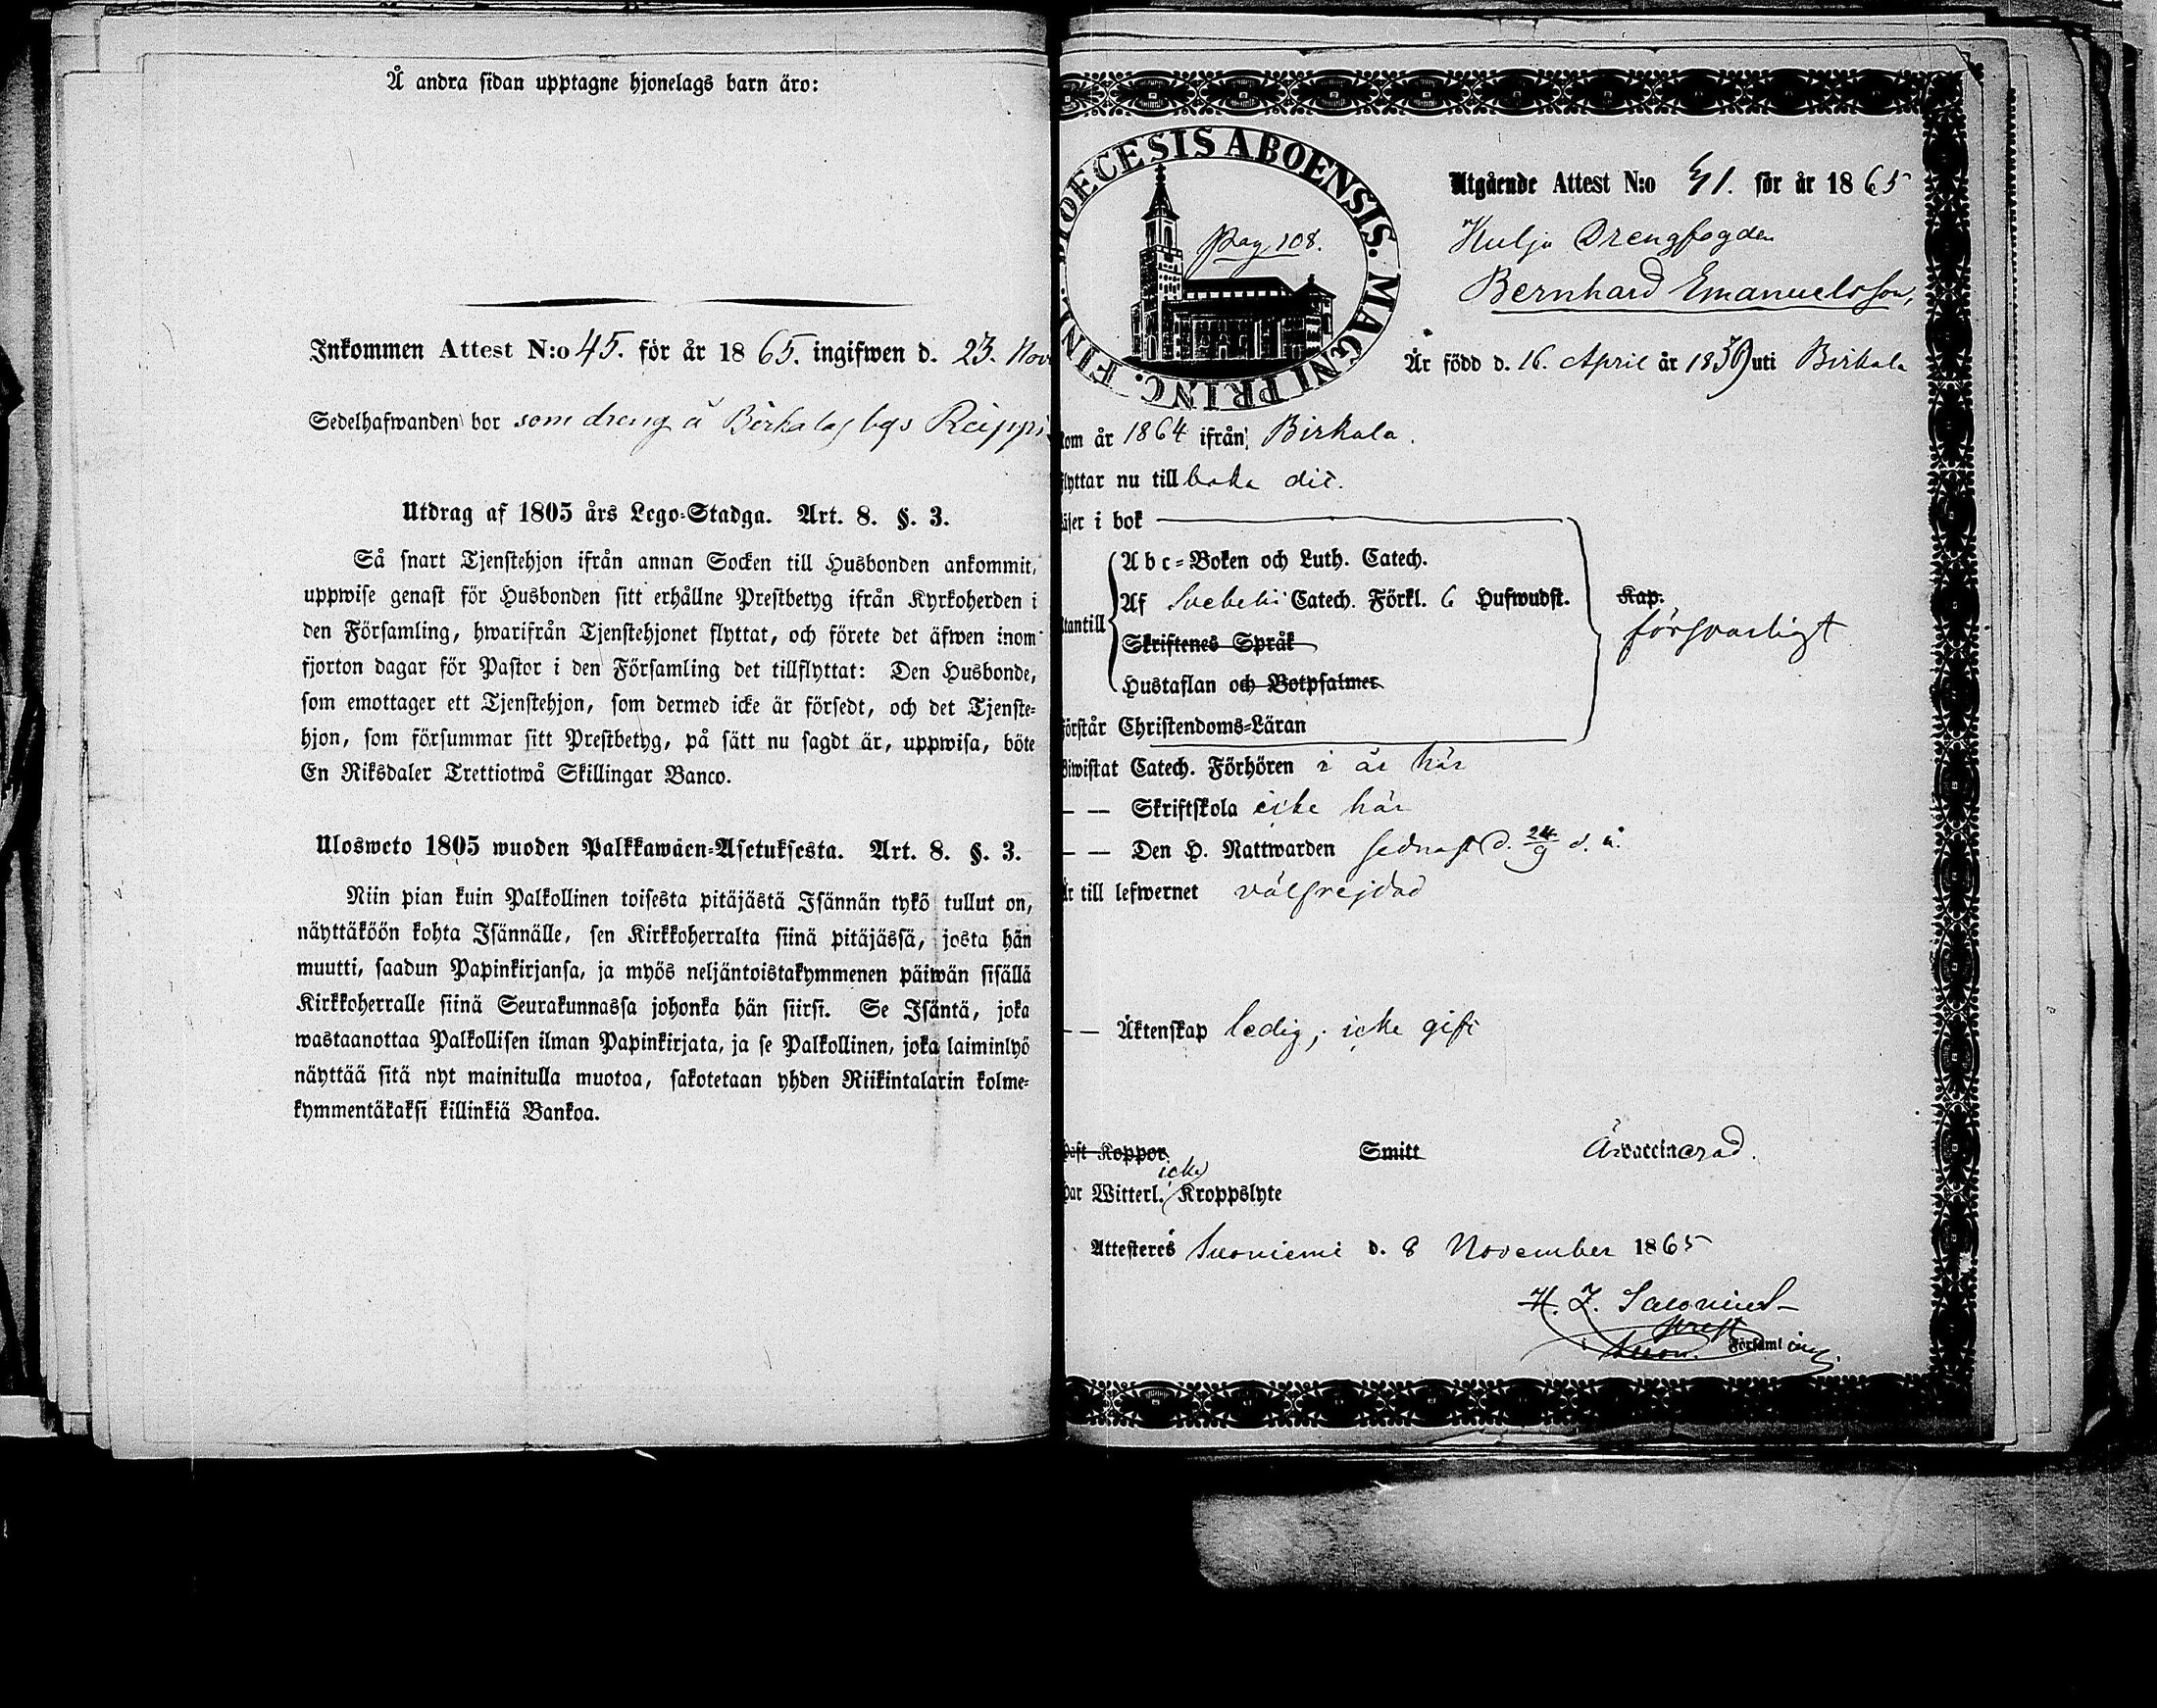 Å andra sidan upptagne hjonelags barn äro:
Inkommen Attest N:o 45. för år 1865. ingifwen d. 23. Nov
Sedelhafwanden bor som dreng å Birkala bys
Utdrag af 1805 års Lego-Stadga. Art. 8. §. 3.
Så snart Tjenstehjon ifrån annan Socken till Husbonden ankommit,
uppwise genast för Husbonden sitt erhållne Prestbetyg ifrån Kyrkoherden i
den Församling, hwarifrån Tjenstehjonet flyttat, och förete det äfwen inom
fjorton dagar för Pastor i den Församling det tillflyttat: Den Husbonde,
som emottager ett Tjenstehjon, som dermed icke är försedt, och det Tjenste-
hjon, som försummar sitt Prestbetyg, på sätt nu sagdt är, uppwisa, böte
En Riksdaler Trettiotwå Skillingar Banco.
Ulosweto 1805 wuoden Palkkawäen-Asetuksesta. Art. 8. §. 3.
Niin pian kuin Palkollinen toisesta pitäjästä Isännän tykö tullut on,
näyttäköön kohta Isännälle, sen Kirkkoherralta siinä pitäjässä, josta hän
muutti, saadun Papinkirjansa, ja myös neljäntoistakymmenen päiwän sisällä
Kirkkoherralle siinä Seurakunnassa johonka hän siirsi. Se Isäntä, joka
wastaanottaa Palkollisen ilman Papinkirjata, ja se Palkollinen, joka laiminlyö
näyttää sitä nyt mainitulla muotoa, sakotetaan yhden Riikintalarin kolme-
kymmentäkaksi killinkiä Bankoa.
DIOECESIS ABOENSIS. MAGNI PRINC. FINL.
Pag 108.
Utgående Attest N:o 41. för år 1865
Kulju Drengfogden
Bernhard Emanuelsson,
Är född d. 16. April år 1839 uti Birkala
kom år 1864 ifrån Birkala.
flyttar nu tillbaka dit.
läser i bok
Abc-Boken och Luth. Catech.
utantill Af Svebelii Catech. Förkl. 6 Hufwudst. Kap.
försvarligt
Skriftenes Språk
Hustaflan och Botpsalmer
förstår Christendoms-Läran
Biwistat Catech. Förhören i år här
— — Skriftskola icke här
— — Den H. Nattwarden sednast d. 24/9 d. å.
Är till lefwernet välfrejdad
— — Äktenskap ledig, icke gift
haft Koppor Smitt Är vaccinerad.
icke
har Witterl. Kroppslyte
Attesteres Suoniemi d. 8 November 1865
H. Z. Salonius
Församl ing.